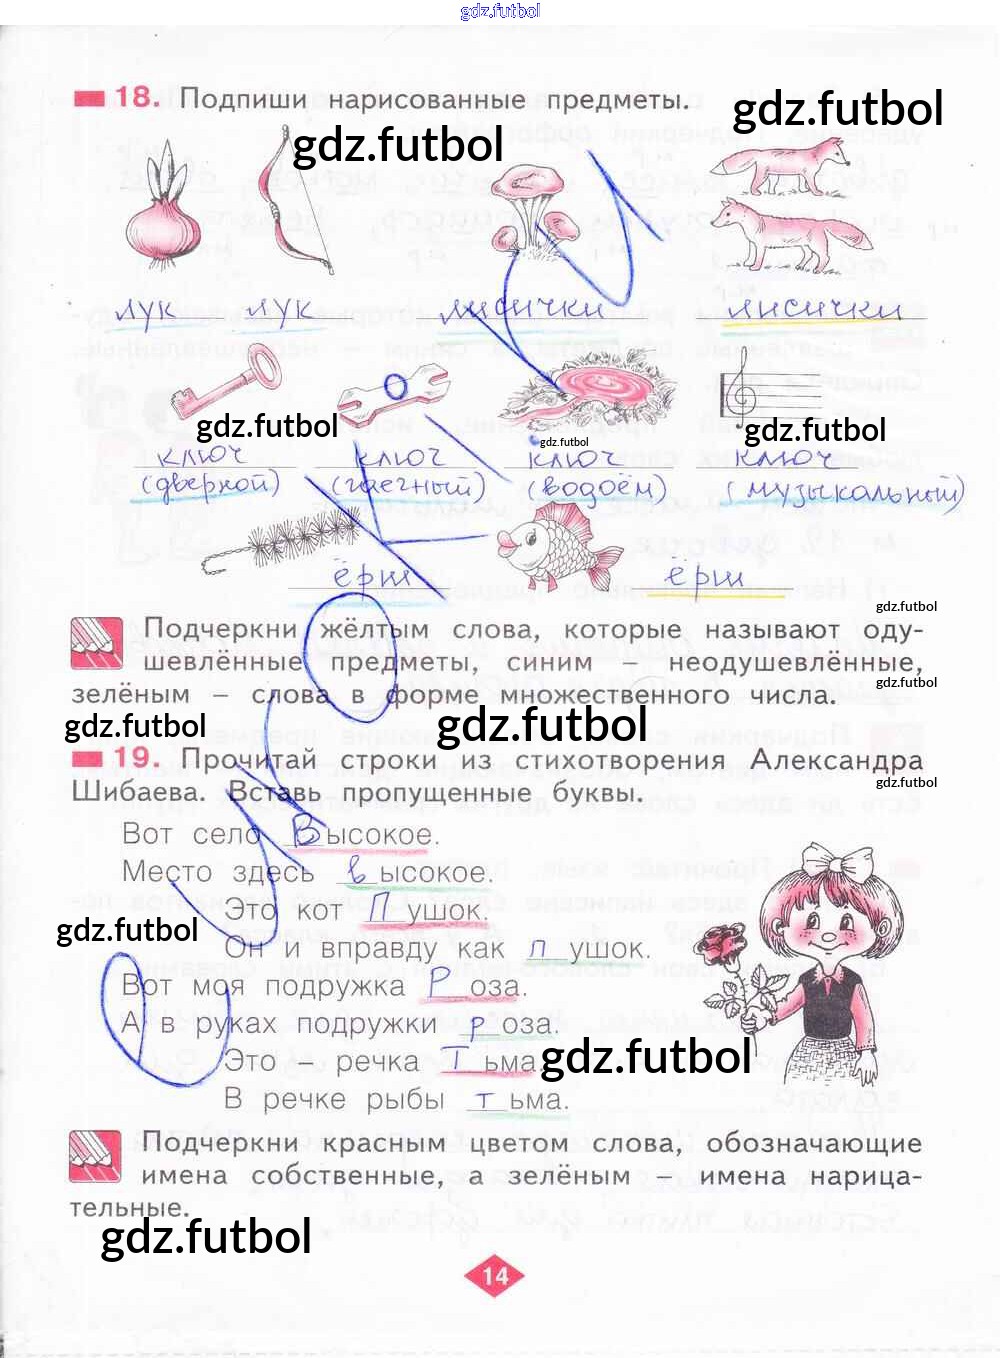 gdz.futbol
18. Подпиши нарисованные предметы.
gdz.futbol
gdz.futbol
лук лук лисички лисички
gdz.futbol
gdz.futbol
gdz.futbol
ключ ключ ключ ключ
(дверной) (гаечный) (водоём) (музыкальный)
ёрш ёрш
gdz.futbol
Подчеркни жёлтым слова, которые называют оду-
шевлённые предметы, синим – неодушевлённые,
gdz.futbol
зелёным – слова в форме множественного числа.
gdz.futbol
gdz.futbol
19. Прочитай строки из стихотворения Александра
gdz.futbol
Шибаева. Вставь пропущенные буквы.
Вот село Высокое.
Место здесь высокое.
Это кот Пушок.
gdz.futbol
Он и вправду как пушок.
Вот моя подружка Роза.
А в руках подружки роза.
Это – речка Тьма.
gdz.futbol
В речке рыбы тьма.
Подчеркни красным цветом слова, обозначающие
имена собственные, а зелёным – имена нарица-
тельные.
gdz.futbol
14